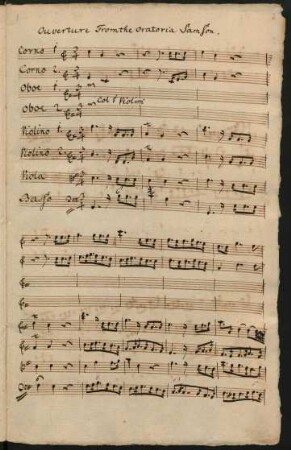 Ouverture From the Oratoria Samson.
Corno 1.
Corno 2.
Oboe 1.
Oboe 2.
Col 1 Violino
Violino 1.
Violino 2.
Viola
Basso